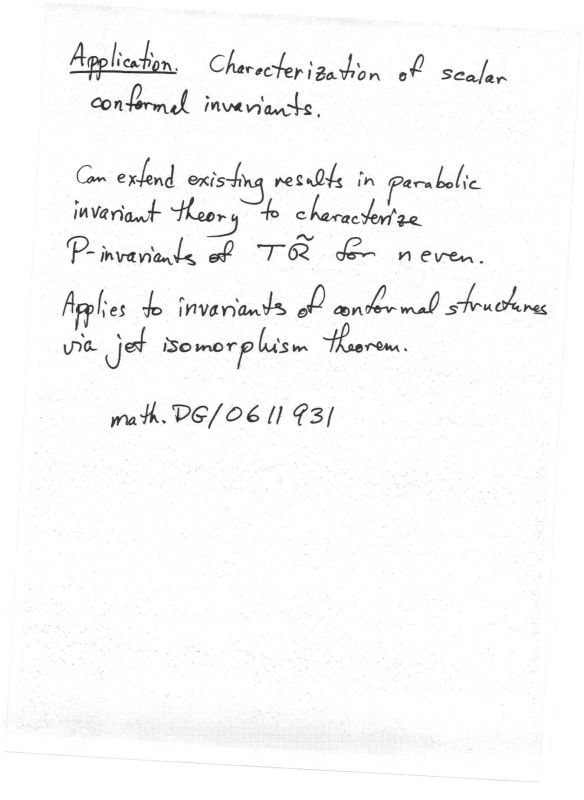 Application. Characterization of scalar
conformal invariants.
Can extend existing results in parabolic
invariant theory to characterize
P-invariants of TR̃ for n even.
Applies to invariants of conformal structures
via jet isomorphism theorem.
math.DG/0611931